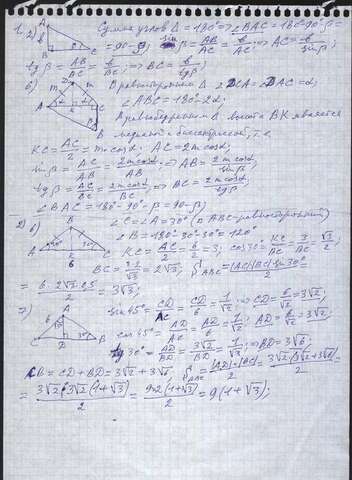 1. а) Сумма углов Δ = 180° ⇒ ∠BAC = 180°-90°-β=
= 90°-β; sin β = AB/AC = в/AC; ⇒ AC = в/sin β;
tg β = AB/BC = в/BC; ⇒ BC = в/tg β;
б) В равностороннем Δ ∠DCA = ∠DAC = α;
∠ADC = 180°-2α;
В равнобедренном Δ высота ВК является
медианой и биссектрисой, т.е.
KC = AC/2 = m cos α. AC = 2m cos α;
sin β = AC/AB = 2m cos α/AB; ⇒ AB = 2m cos α/sin β;
tg β = AC/BC = 2m cos α/BC; ⇒ BC = 2m cos α/tg β;
∠BAC = 180°-90°-β = 90°-β;
2) б) ∠C = ∠A = 30° (ΔABC-равносторонний)
∠B = 180°-30°-30° = 120°
KC = AC/2 = 6/2 = 3; cos 30° = KC/BC = 3/BC = √3/2;
BC = 3·2/√3 = 2√3; S ABC = |AC||BC| sin 30°/2 =
= 6·2√3·0.5/2 = 3√3;
7) sin 45° = CD/AC = CD/6 = 1/√2; ⇒ CD = 6/√2 = 3√2;
cos 45° = AD/AC = AD/6 = 1/√2; AD = 6/√2 = 3√2;
tg 30° = AD/BD = 3√2/BD = 1/√3; ⇒ BD = 3√6;
CB = CD+BD = 3√2 + 3√6; S ABC = |AD|·|BC|/2 = 3√2(3√2+3√6)/2 =
= 3√2·3√2(1+√3)/2 = 9·2(1+√3)/2 = 9(1+√3);